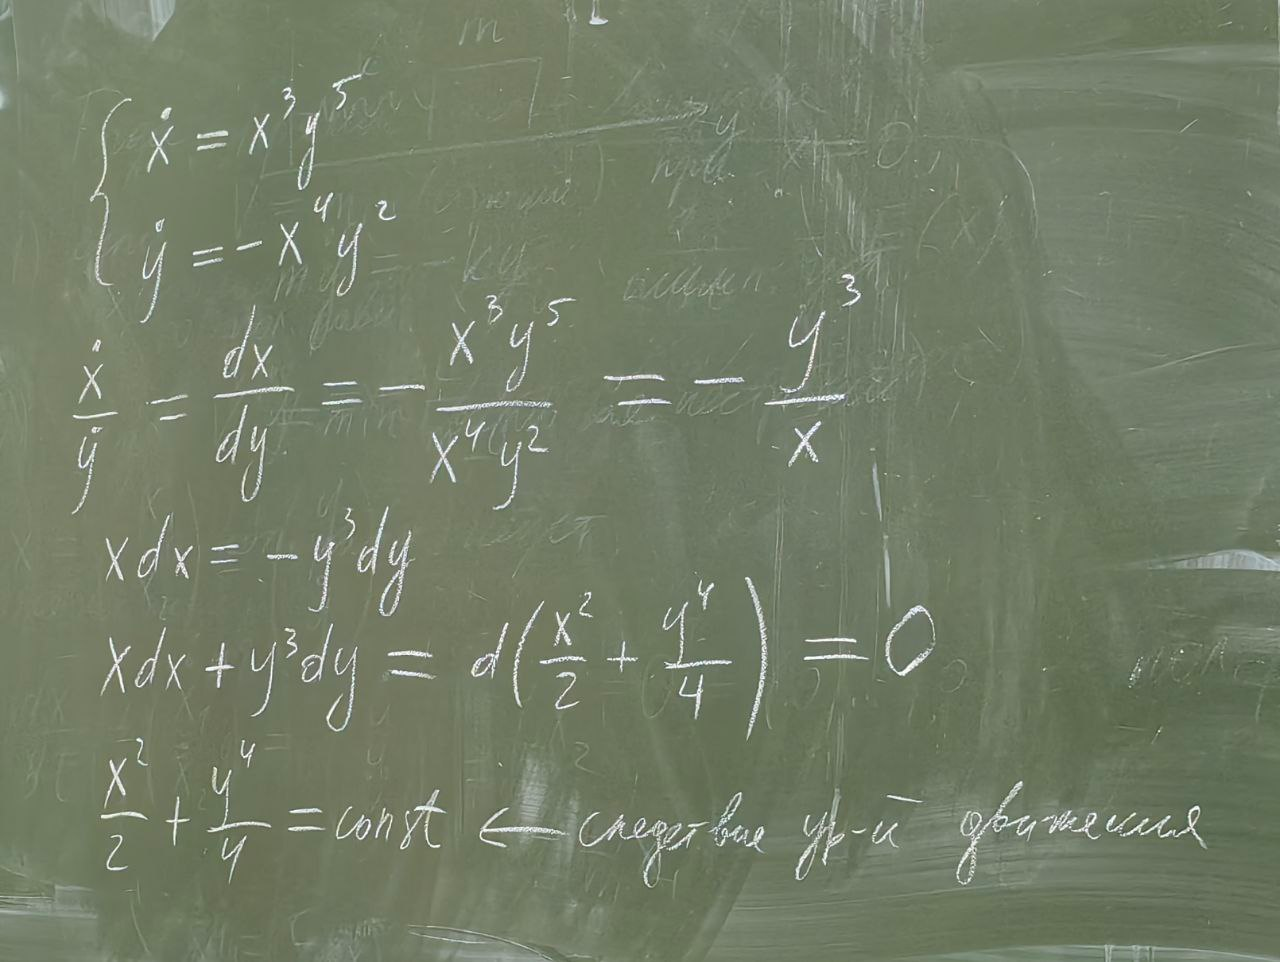 ẋ = x³y⁵
ẏ = -x⁴y²
ẋ/ẏ = dx/dy = - x³y⁵/x⁴y² = - y³/x
xdx = -y³dy
xdx + y³dy = d(x²/2 + y⁴/4) = 0
x²/2 + y⁴/4 = const ← следствие ур-й движения